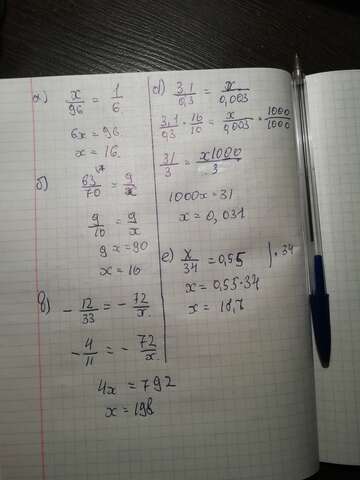 а) x/96 = 1/6
6x = 96
x = 16.
б) 63/70 = 9/x
9/10 = 9/x
9x = 90
x = 10
в) - 12/33 = - 72/x.
- 4/11 = - 72/x
4x = 792
x = 198.
d) 3,1/0,3 = x/0,003
3,1/0,3 · 10/10 = x/0,003 · 1000/1000
31/3 = x1000/3
1000x = 31
x = 0,031
е) x/34 = 0,55 | · 34
x = 0,55 · 34
x = 18,7